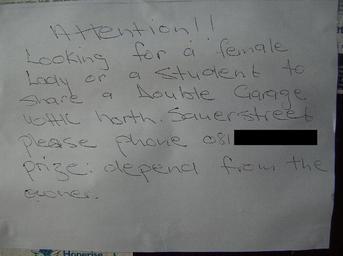 Attention!!
Looking for a female
Lady or a student to
share a Double Garage
north. Sauerstreet
please phone 081
prize: depend from the
owner.
Honerise